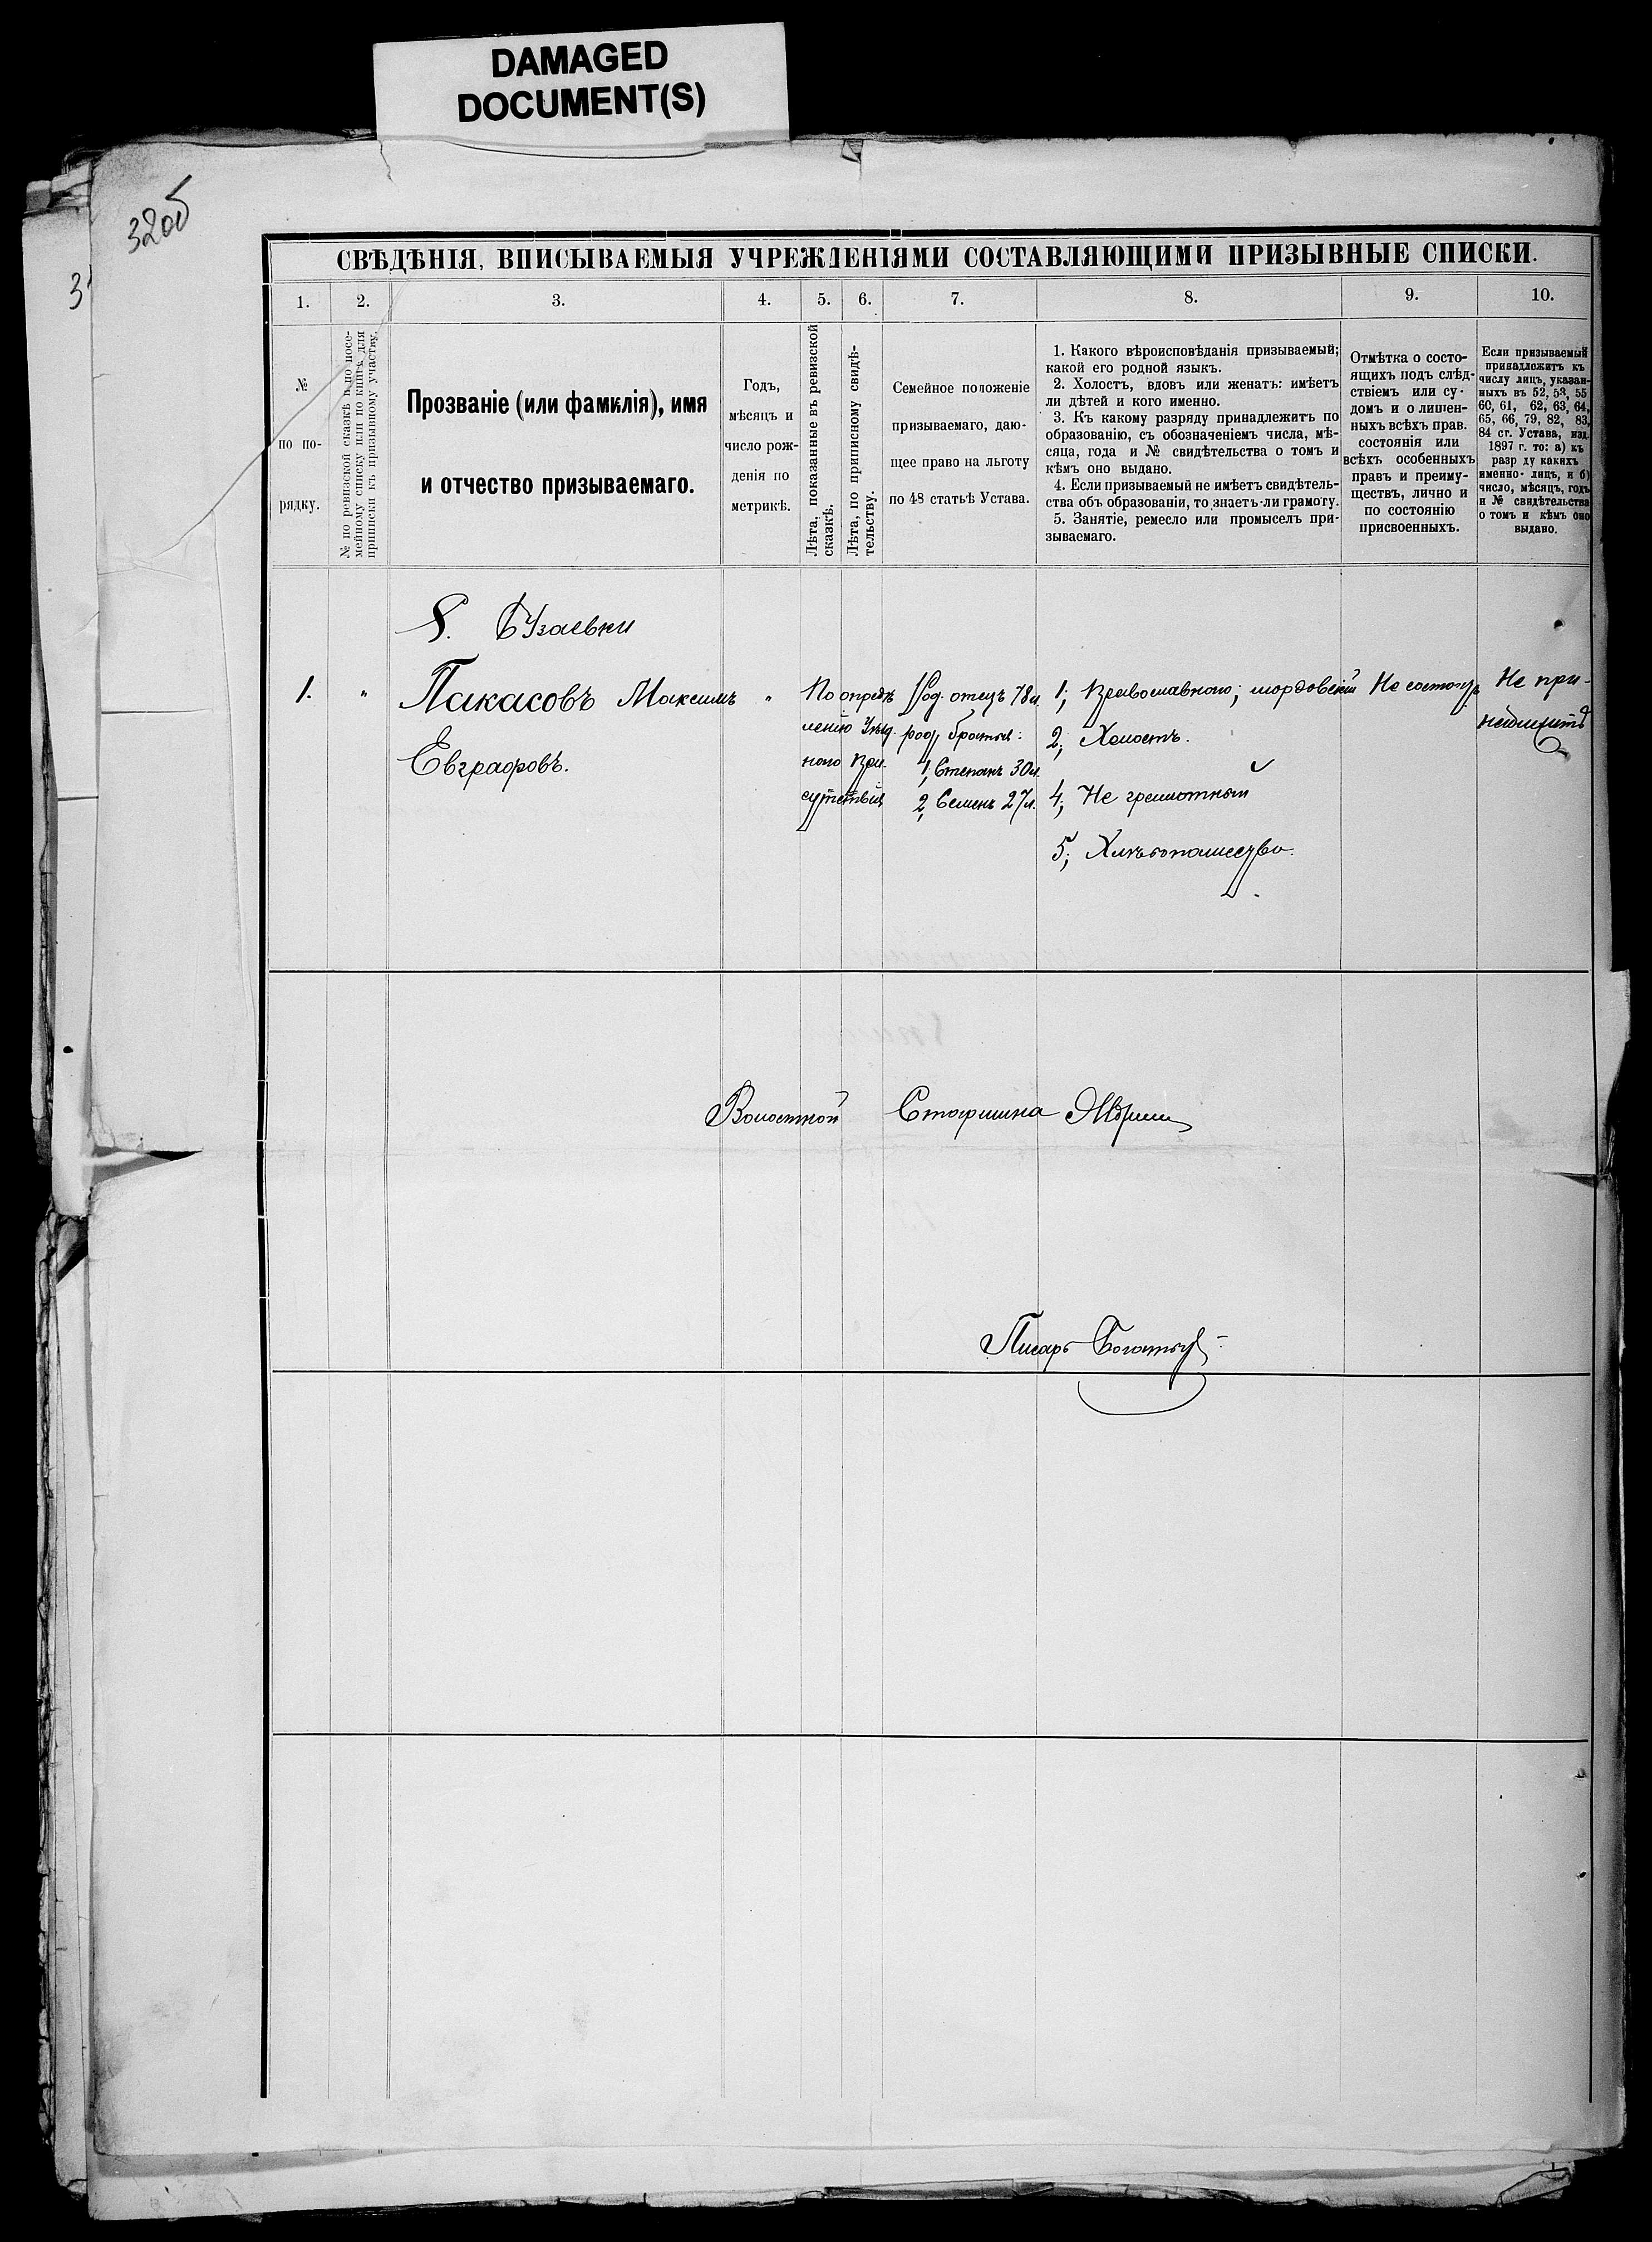 DAMAGED
DOCUMENT(S)
32об
СВѢДѢНІЯ, ВПИСЫВАЕМЫЯ УЧРЕЖДЕНІЯМИ СОСТАВЛЯЮЩИМИ ПРИЗЫВНЫЕ СПИСКИ.
1. 2. 3. 4. 5. 6. 7. 8. 9. 10.
№
по по-
рядку.
№ по ревизской сказкѣ и по посе-
мейному списку или по книгѣ для
приписки къ призывному участку.
Прозваніе (или фамилія), имя
и отчество призываемаго.
Годъ,
мѣсяцъ и
число рож-
денія по
метрикѣ.
Лѣта, показанные въ ревизской
сказкѣ.
Лѣта, по приписному свидѣ-
тельству.
Семейное положеніе
призываемаго, даю-
щее право на льготу
по 48 статьѣ Устава.
1. Какого вѣроисповѣданія призываемый;
какой его родной языкъ.
2. Холостъ, вдовъ или женатъ: имѣетъ
ли дѣтей и кого именно.
3. Къ какому разряду принадлежитъ по
образованію, съ обозначеніемъ числа, мѣ-
сяца, года и № свидѣтельства о томъ и
кѣмъ оно выдано.
4. Если призываемый не имѣетъ свидѣтель-
ства объ образованіи, то знаетъ-ли грамоту.
5. Занятіе, ремесло или промыселъ при-
зываемаго.
Отмѣтка о состо-
ящихъ подъ слѣд-
ствіемъ или су-
домъ и о лишен-
ныхъ всѣхъ прав.
состоянія или
всѣхъ особенныхъ
правъ и преиму-
ществъ, лично и
по состоянію
присвоенныхъ.
Если призываемый
принадлежитъ къ
числу лицъ, указан-
ныхъ въ 52, 53, 55
60, 61, 62, 63, 64,
65, 66, 79, 82, 83,
84 ст. Устава, изд.
1897 г. то: а) къ
разр ду какихъ
именно лицъ, и б)
число, мѣсяцъ, годъ
и № свидѣтельства
о томъ и кѣмъ оно
выдано.
Бузаевки
1. "
Пакасовъ Максимъ
Евграфовъ.
"
По опредѣ
ленію Уѣзд.
наго При-
сутствія
Род. отецъ 78л.
род. братья:
1, Степанъ 30л.
2, Семенъ 27л.
1; Православнаго; мордовскій
2; Холостъ.
4; Не грамотный
5; Хлѣбопашество.
Не состоитъ
Не при-
надлежитъ
Волостной Старшина
Писарь